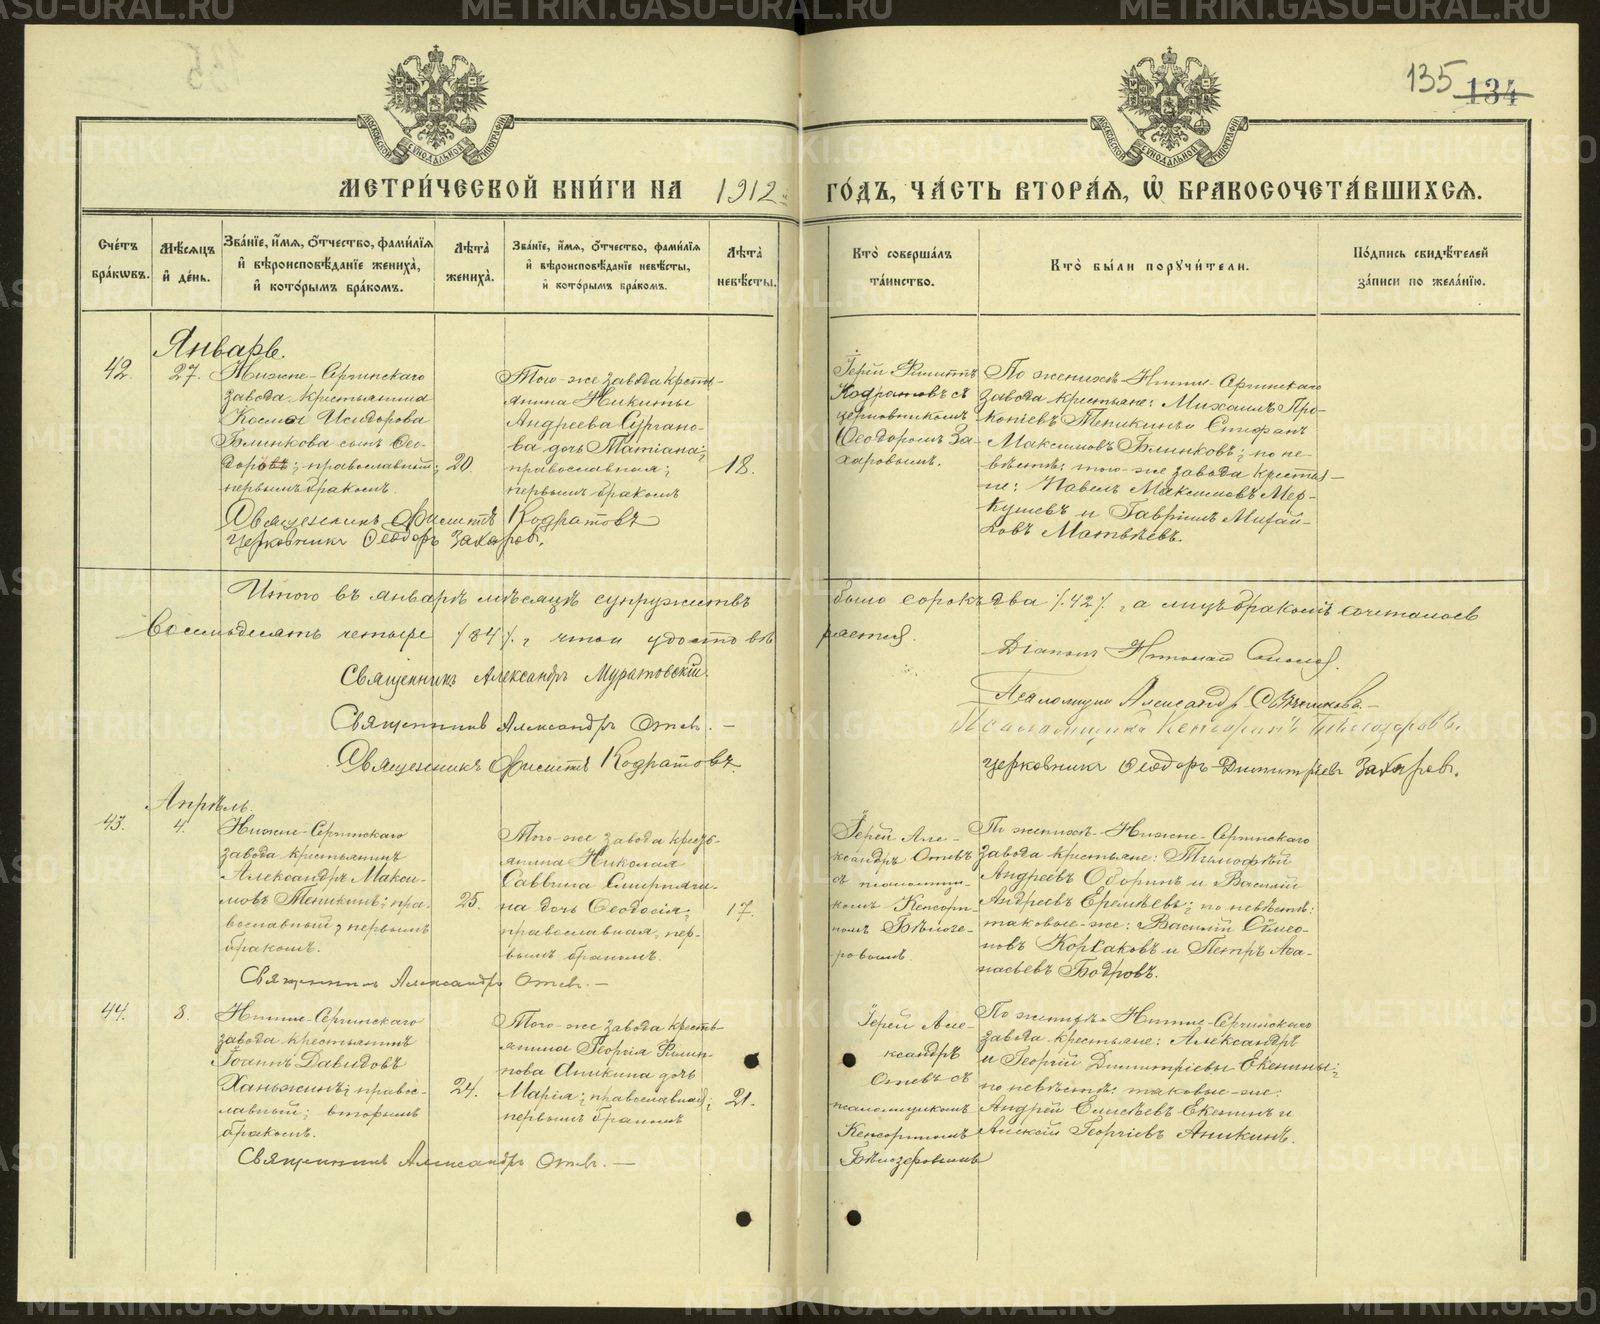 135 134
МЕТРИ́ЧЕСКОЙ КНИ́ГИ НА 1912 ГО́ДЪ, ЧА́СТЬ ВТОРА́Я, Ѡ҆ БРАКОСОЧЕТА́ВШИХСЯ.
Сче́тъ бра́кѡвъ.
Мѣ́сяцъ и҆ де́нь.
Зва́нїе, и҆́мя, ѻ҆́тчество, фами́лїя
и҆ вѣроисповѣ́данїе жениха̀,
и҆ кото́рымъ бра́комъ.
Лѣ́та̀ жениха̀.
Зва́нїе, и҆́мя, ѻ҆́тчество, фами́лїя
и҆ вѣроисповѣ́данїе невѣ́сты,
и҆ кото́рымъ бра́комъ.
Лѣ́та̀ невѣ́сты.
Кто̀ соверша́лъ та́инство.
Кто̀ бы́ли пορучи́тели.
По́дпись свидѣ́телей за́писи по жела́нїю.
Январь.
42. 27.
Нижне-Сергинскаго
завода крестьянина
Космы Исидорова
Блинкова сынъ Ѳео-
доръ; православный;
первымъ бракомъ.
20.
Того-же завода кресть-
янина Никиты
Андреева Сургано-
ва дочь Татіана;
православная;
первымъ бракомъ
18.
Іерей Филиппъ
Кодратовъ съ
церковникомъ
Ѳеодоромъ За-
харовымъ.
По женихѣ Нижне-Сергинскаго
завода крестьяне: Михаилъ Про-
копіевъ Тепикинъ и Стефанъ
Максимовъ Блинковъ; по не-
вѣстѣ: того-же завода крестья-
не: Павелъ Максимовъ Мер-
кушевъ и Гавріилъ Михай-
ловъ Матвѣевъ.
Священникъ Филиппъ Кодратовъ
Церковникъ Ѳеодоръ Захаровъ.
Итого въ январѣ мѣсяцѣ супружествъ было сорокъ два /.42./, а лицъ бракомъ сочеталось
восемьдесятъ четыре /.84./, что и удостовѣряется.
Священникъ Александръ Муратовскій.
Священникъ Александръ Отевъ.
Священникъ Филиппъ Кодратовъ.
Діаконъ Николай
Псаломщикъ Александръ
Псаломщикъ Кенсоринъ Бѣлозеровъ.
Церковникъ Ѳеодоръ Димитріевъ Захаровъ.
Апрѣль.
43. 4.
Нижне-Сергинскаго
завода крестьянинъ
Александръ Макси-
мовъ Тепикинъ; пра-
вославный; первымъ
бракомъ.
25.
Того-же завода кресть-
янина Николая
Саввина Смирняги-
на дочь Ѳеодосія;
православная, пер-
вымъ бракомъ.
17.
Іерей Але-
ксандръ Отевъ
съ псаломщи-
комъ Кенсори-
номъ Бѣлозе-
ровымъ.
По женихѣ-Нижне-Сергинскаго
завода крестьяне: Тимоѳей
Андреевъ Оборинъ и Василій
Андреевъ Еремѣевъ; по невѣстѣ:
таковые-же: Василій Симео-
новъ Корсаковъ и Петръ Аѳа-
насьевъ Бодровъ.
Священникъ Александръ Отевъ.
44. 8.
Нижне-Сергинскаго
завода крестьянинъ
Іоаннъ Давидовъ
Ханьжинъ; правос-
лавный; вторымъ
бракомъ.
24.
Того-же завода кресть-
янина Георгія Филип-
пова Аникина дочь
Марія; православная;
первымъ бракомъ
21.
Іерей Але-
ксандръ
Отевъ съ
псаломщикомъ
Кенсориномъ
Бѣлозеровымъ
По женихѣ-Нижне-Сергинскаго
завода крестьяне: Александръ
и Георгій Димитріевы Екенины;
по невѣстѣ: таковые-же:
Андрей Елисѣевъ Екенинъ и
Алексѣй Георгіевъ Аникинъ.
Священникъ Александръ Отевъ.
METRIKI.GASO-URAL.RU